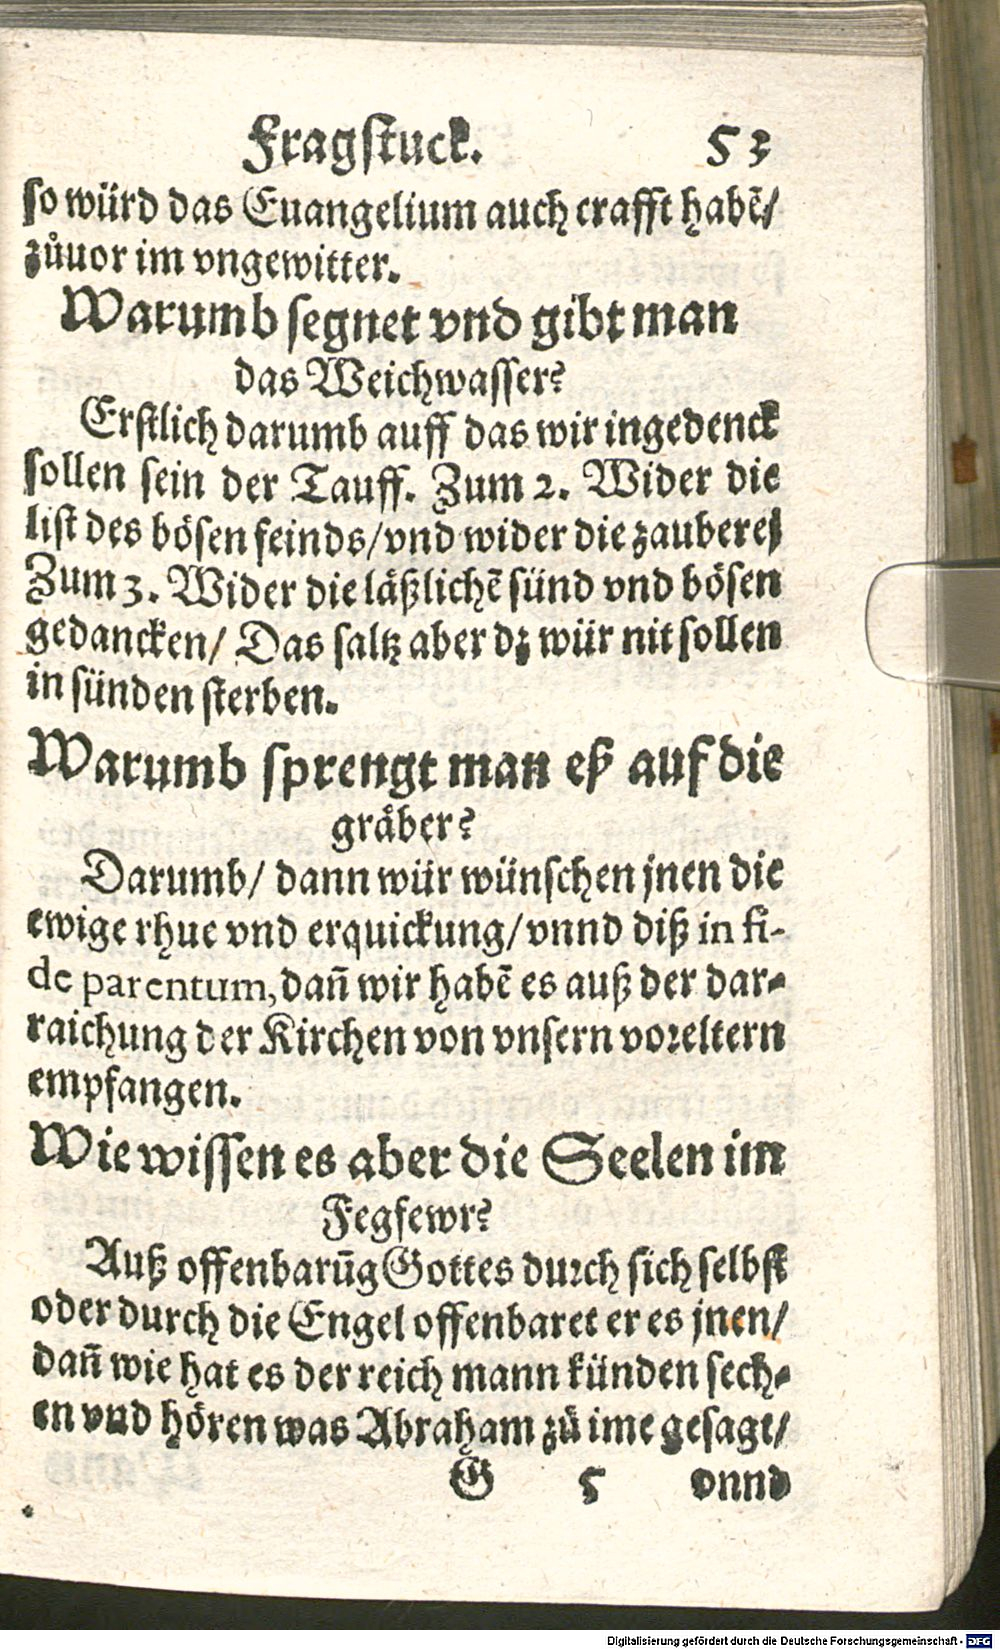 Fragstuck. 53
so würd das Euangelium auch crafft habẽ/
zůuor im vngewitter.
Warumb segnet vnd gibt man
das Weichwasser?
Erstlich darumb auff das wir ingedenck
sollen sein der Tauff. Zum 2. Wider die
list des bösen feinds/vnd wider die zauberej
Zum 3. Wider die läßlichẽ sünd vnd bösen
gedancken/ Das saltz aber dz wür nit sollen
in sünden sterben.
Warumb sprengt man eß auf die
gräber?
Darumb/ dann wür wünschen jnen die
ewige rhue vnd erquickung/vnnd diß in fi-
de parentum, dañ wir habẽ es auß der dar-
raichung der Kirchen von vnsern voreltern
empfangen.
Wie wissen es aber die Seelen im
Fegfewr?
Auß offenbarũg Gottes durch sich selbst
oder durch die Engel offenbaret er es jnen/
dañ wie hat es der reich mann künden sech-
en vnd hören was Abraham zů ime gesagt/
G 5 vnnd
Digitalisierung gefördert durch die Deutsche Forschungsgemeinschaft - DFG